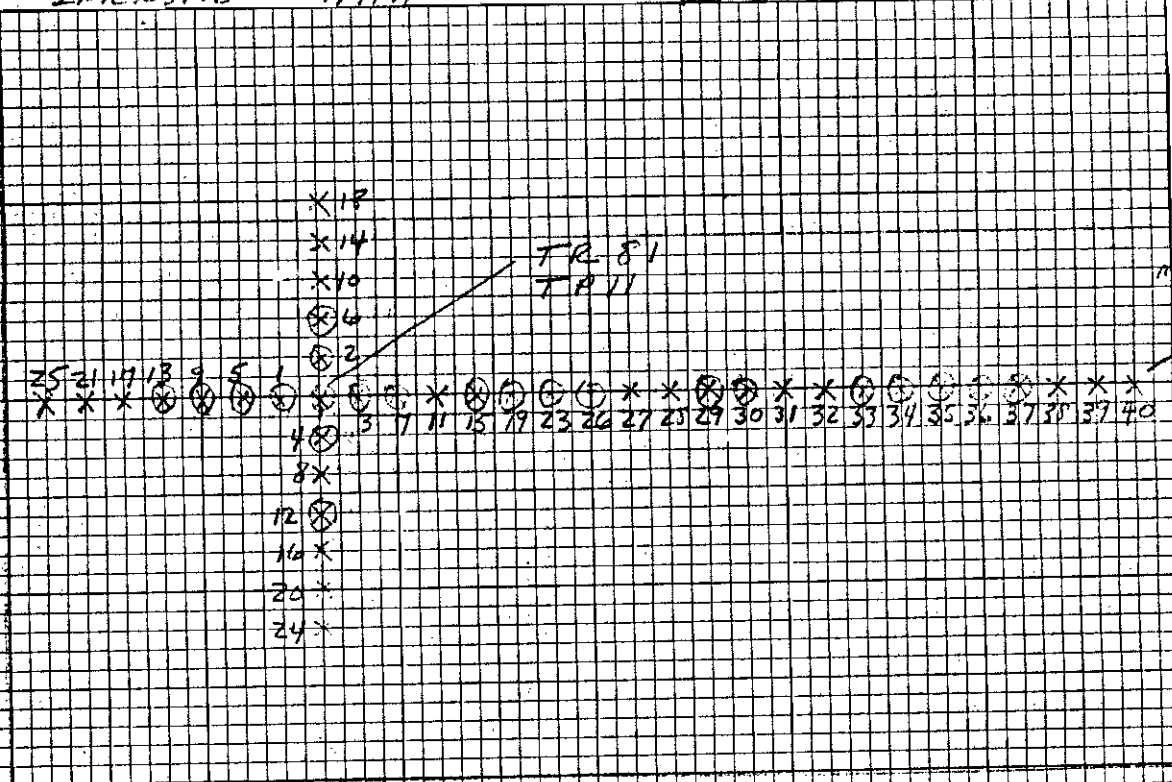 18
14
TR 81
10
TP 11
6
2
25 21 17 13 9 5 1
3 7 11 15 19 23 26 27 28 29 30 31 32 33 34 35 36 37 38 39 40
4
8
12
16
20
24